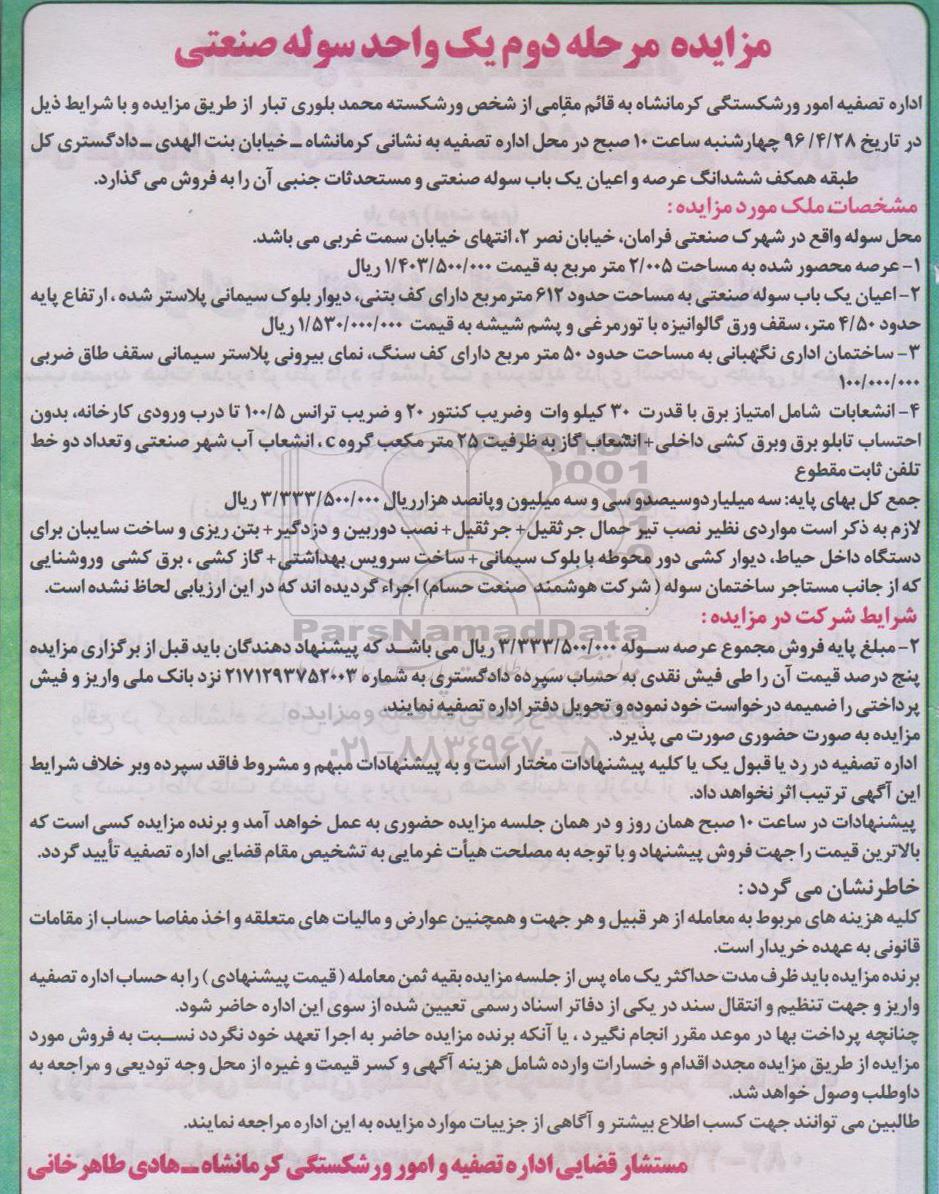 مزایده مرحله دوم یک واحد سوله صنعتی
اداره تصفیه امور ورشکستگی کرمانشاه به قائم مقامی از شخص ورشکسته محمد بلوری تبار از طریق مزایده و با شرایط ذیل
در تاریخ ۹۶/۴/۲۸ چهارشنبه ساعت ۱۰ صبح در محل اداره تصفیه به نشانی کرمانشاه ــ خیابان بنت الهدی ــ دادگستری کل
طبقه همکف ششدانگ عرصه و اعیان یک باب سوله صنعتی و مستحدثات جنبی آن را به فروش می گذارد.
مشخصات ملک مورد مزایده :
محل سوله واقع در شهرک صنعتی فرامان، خیابان نصر ۲، انتهای خیابان سمت غربی می باشد.
۱- عرصه محصور شده به مساحت ۲/۰۰۵ متر مربع به قیمت ۱/۴۰۳/۵۰۰/۰۰۰ ریال
۲- اعیان یک باب سوله صنعتی به مساحت حدود ۶۱۲ مترمربع دارای کف بتنی، دیوار بلوک سیمانی پلاستر شده ، ارتفاع پایه
حدود ۴/۵۰ متر، سقف ورق گالوانیزه با تورمرغی و پشم شیشه به قیمت ۱/۵۳۰/۰۰۰/۰۰۰ ریال
۳- ساختمان اداری نگهبانی به مساحت حدود ۵۰ متر مربع دارای کف سنگ، نمای بیرونی پلاستر سیمانی سقف طاق ضربی
۱۰۰/۰۰۰/۰۰۰
۴- انشعابات شامل امتیاز برق با قدرت ۳۰ کیلو وات وضریب کنتور ۲۰ و ضریب ترانس ۱۰۰/۵ تا درب ورودی کارخانه، بدون
احتساب تابلو برق وبرق کشی داخلی+ انشعاب گاز به ظرفیت ۲۵ متر مکعب گروه c ، انشعاب آب شهر صنعتی وتعداد دو خط
تلفن ثابت مقطوع
جمع کل بهای پایه: سه میلیاردوسیصدو سی و سه میلیون و پانصد هزارریال ۳/۳۳۳/۵۰۰/۰۰۰ ریال
لازم به ذکر است مواردی نظیر نصب تیر حمال جرثقیل+ جرثقیل+ نصب دوربین و دزدگیر+ بتن ریزی و ساخت سایبان برای
دستگاه داخل حیاط، دیوار کشی دور محوطه با بلوک سیمانی+ ساخت سرویس بهداشتی+ گاز کشی ، برق کشی وروشنایی
که از جانب مستاجر ساختمان سوله ( شرکت هوشمند صنعت حسام) اجراء گردیده اند که در این ارزیابی لحاظ نشده است.
شرایط شرکت در مزایده :
ParsNamadData
۲- مبلغ پایه فروش مجموع عرصه سوله ۳/۳۳۳/۵۰۰/۰۰۰ ریال می باشد که پیشنهاد دهندگان باید قبل از برگزاری مزایده
پنج درصد قیمت آن را طی فیش نقدی به حساب سپرده دادگستری به شماره ۲۱۷۱۲۹۳۷۵۲۰۰۳ نزد بانک ملی واریز و فیش
پرداختی را ضمیمه درخواست خود نموده و تحویل دفتر اداره تصفیه نمایند.
مزایده به صورت حضوری صورت می پذیرد.
۰۲۱-۸۸۳۴۹۶۷۰-۵
اداره تصفیه در رد یا قبول یک یا کلیه پیشنهادات مختار است و به پیشنهادات مبهم و مشروط فاقد سپرده وبر خلاف شرایط
این آگهی ترتیب اثر نخواهد داد.
پیشنهادات در ساعت ۱۰ صبح همان روز و در همان جلسه مزایده حضوری به عمل خواهد آمد و برنده مزایده کسی است که
بالاترین قیمت را جهت فروش پیشنهاد و با توجه به مصلحت هیأت غرمایی به تشخیص مقام قضایی اداره تصفیه تأیید گردد.
خاطرنشان می گردد :
کلیه هزینه های مربوط به معامله از هر قبیل و هر جهت و همچنین عوارض و مالیات های متعلقه و اخذ مفاصا حساب از مقامات
قانونی به عهده خریدار است.
برنده مزایده باید ظرف مدت حداکثر یک ماه پس از جلسه مزایده بقیه ثمن معامله ( قیمت پیشنهادی ) را به حساب اداره تصفیه
واریز و جهت تنظیم و انتقال سند در یکی از دفاتر اسناد رسمی تعیین شده از سوی این اداره حاضر شود.
چنانچه پرداخت بها در موعد مقرر انجام نگیرد ، یا آنکه برنده مزایده حاضر به اجرا تعهد خود نگردد نسبت به فروش مورد
مزایده از طریق مزایده مجدد اقدام و خسارات وارده شامل هزینه آگهی و کسر قیمت و غیره از محل وجه تودیعی و مراجعه به
داوطلب وصول خواهد شد.
طالبین می توانند جهت کسب اطلاع بیشتر و آگاهی از جزییات موارد مزایده به این اداره مراجعه نمایند.
مستشار قضایی اداره تصفیه و امور ورشکستگی کرمانشاه ــ هادی طاهرخانی